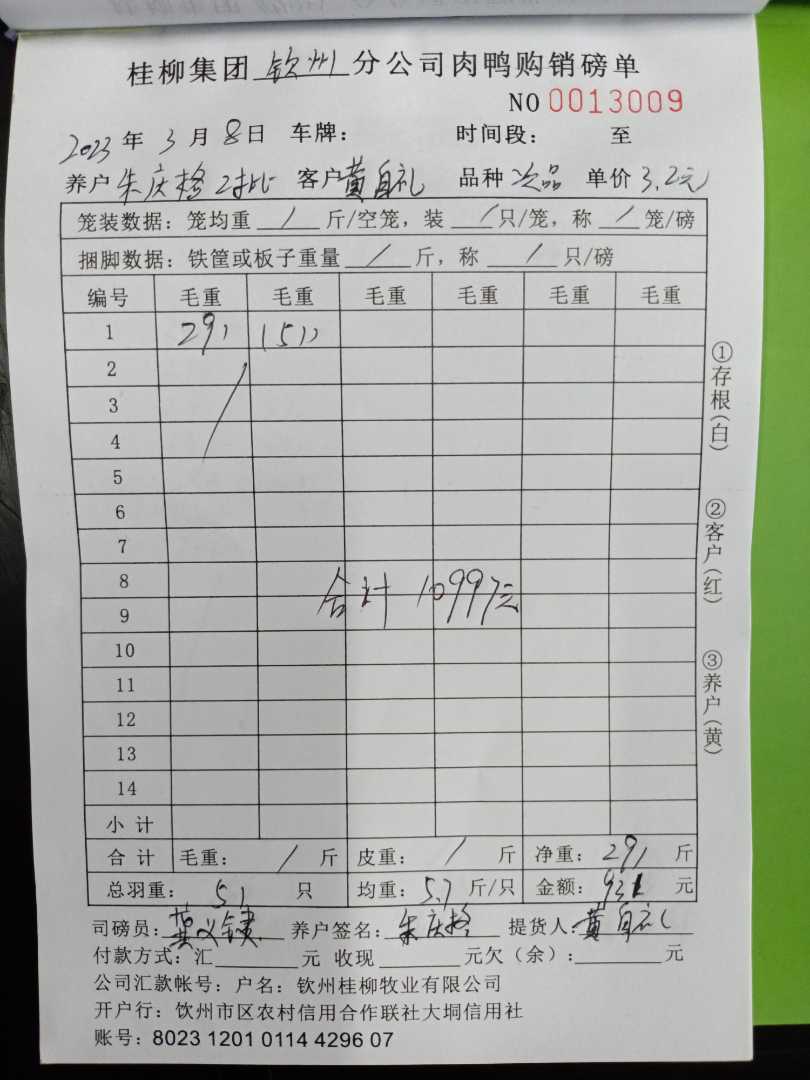 桂柳集团 钦州 分公司肉鸭购销磅单
NO 0013009
2023 年 3 月 8 日 车牌: 时间段: 至
养户 朱庆格 2批 客户 黄自礼 品种 次品 单价 3.2元
笼装数据: 笼均重 / 斤/空笼, 装 / 只/笼, 称 / 笼/磅
捆脚数据: 铁筐或板子重量 / 斤, 称 / 只/磅
编号 毛重 毛重 毛重 毛重 毛重 毛重
1 291 (51)
2
3
4
5
6
7
8
合计 10997元
9
10
11
12
13
14
小计
合计 毛重: / 斤 皮重: / 斤 净重: 291 斤
总羽重: 51 只 均重: 5.7 斤/只 金额: 931 元
司磅员: 养户签名: 朱庆格 提货人: 黄自礼
付款方式: 汇 元 收现 元欠(余): 元
公司汇款帐号: 户名: 钦州桂柳牧业有限公司
开户行: 钦州市区农村信用合作联社大垌信用社
账号: 8023 1201 0114 4296 07
①存根(白)
②客户(红)
③养户(黄)